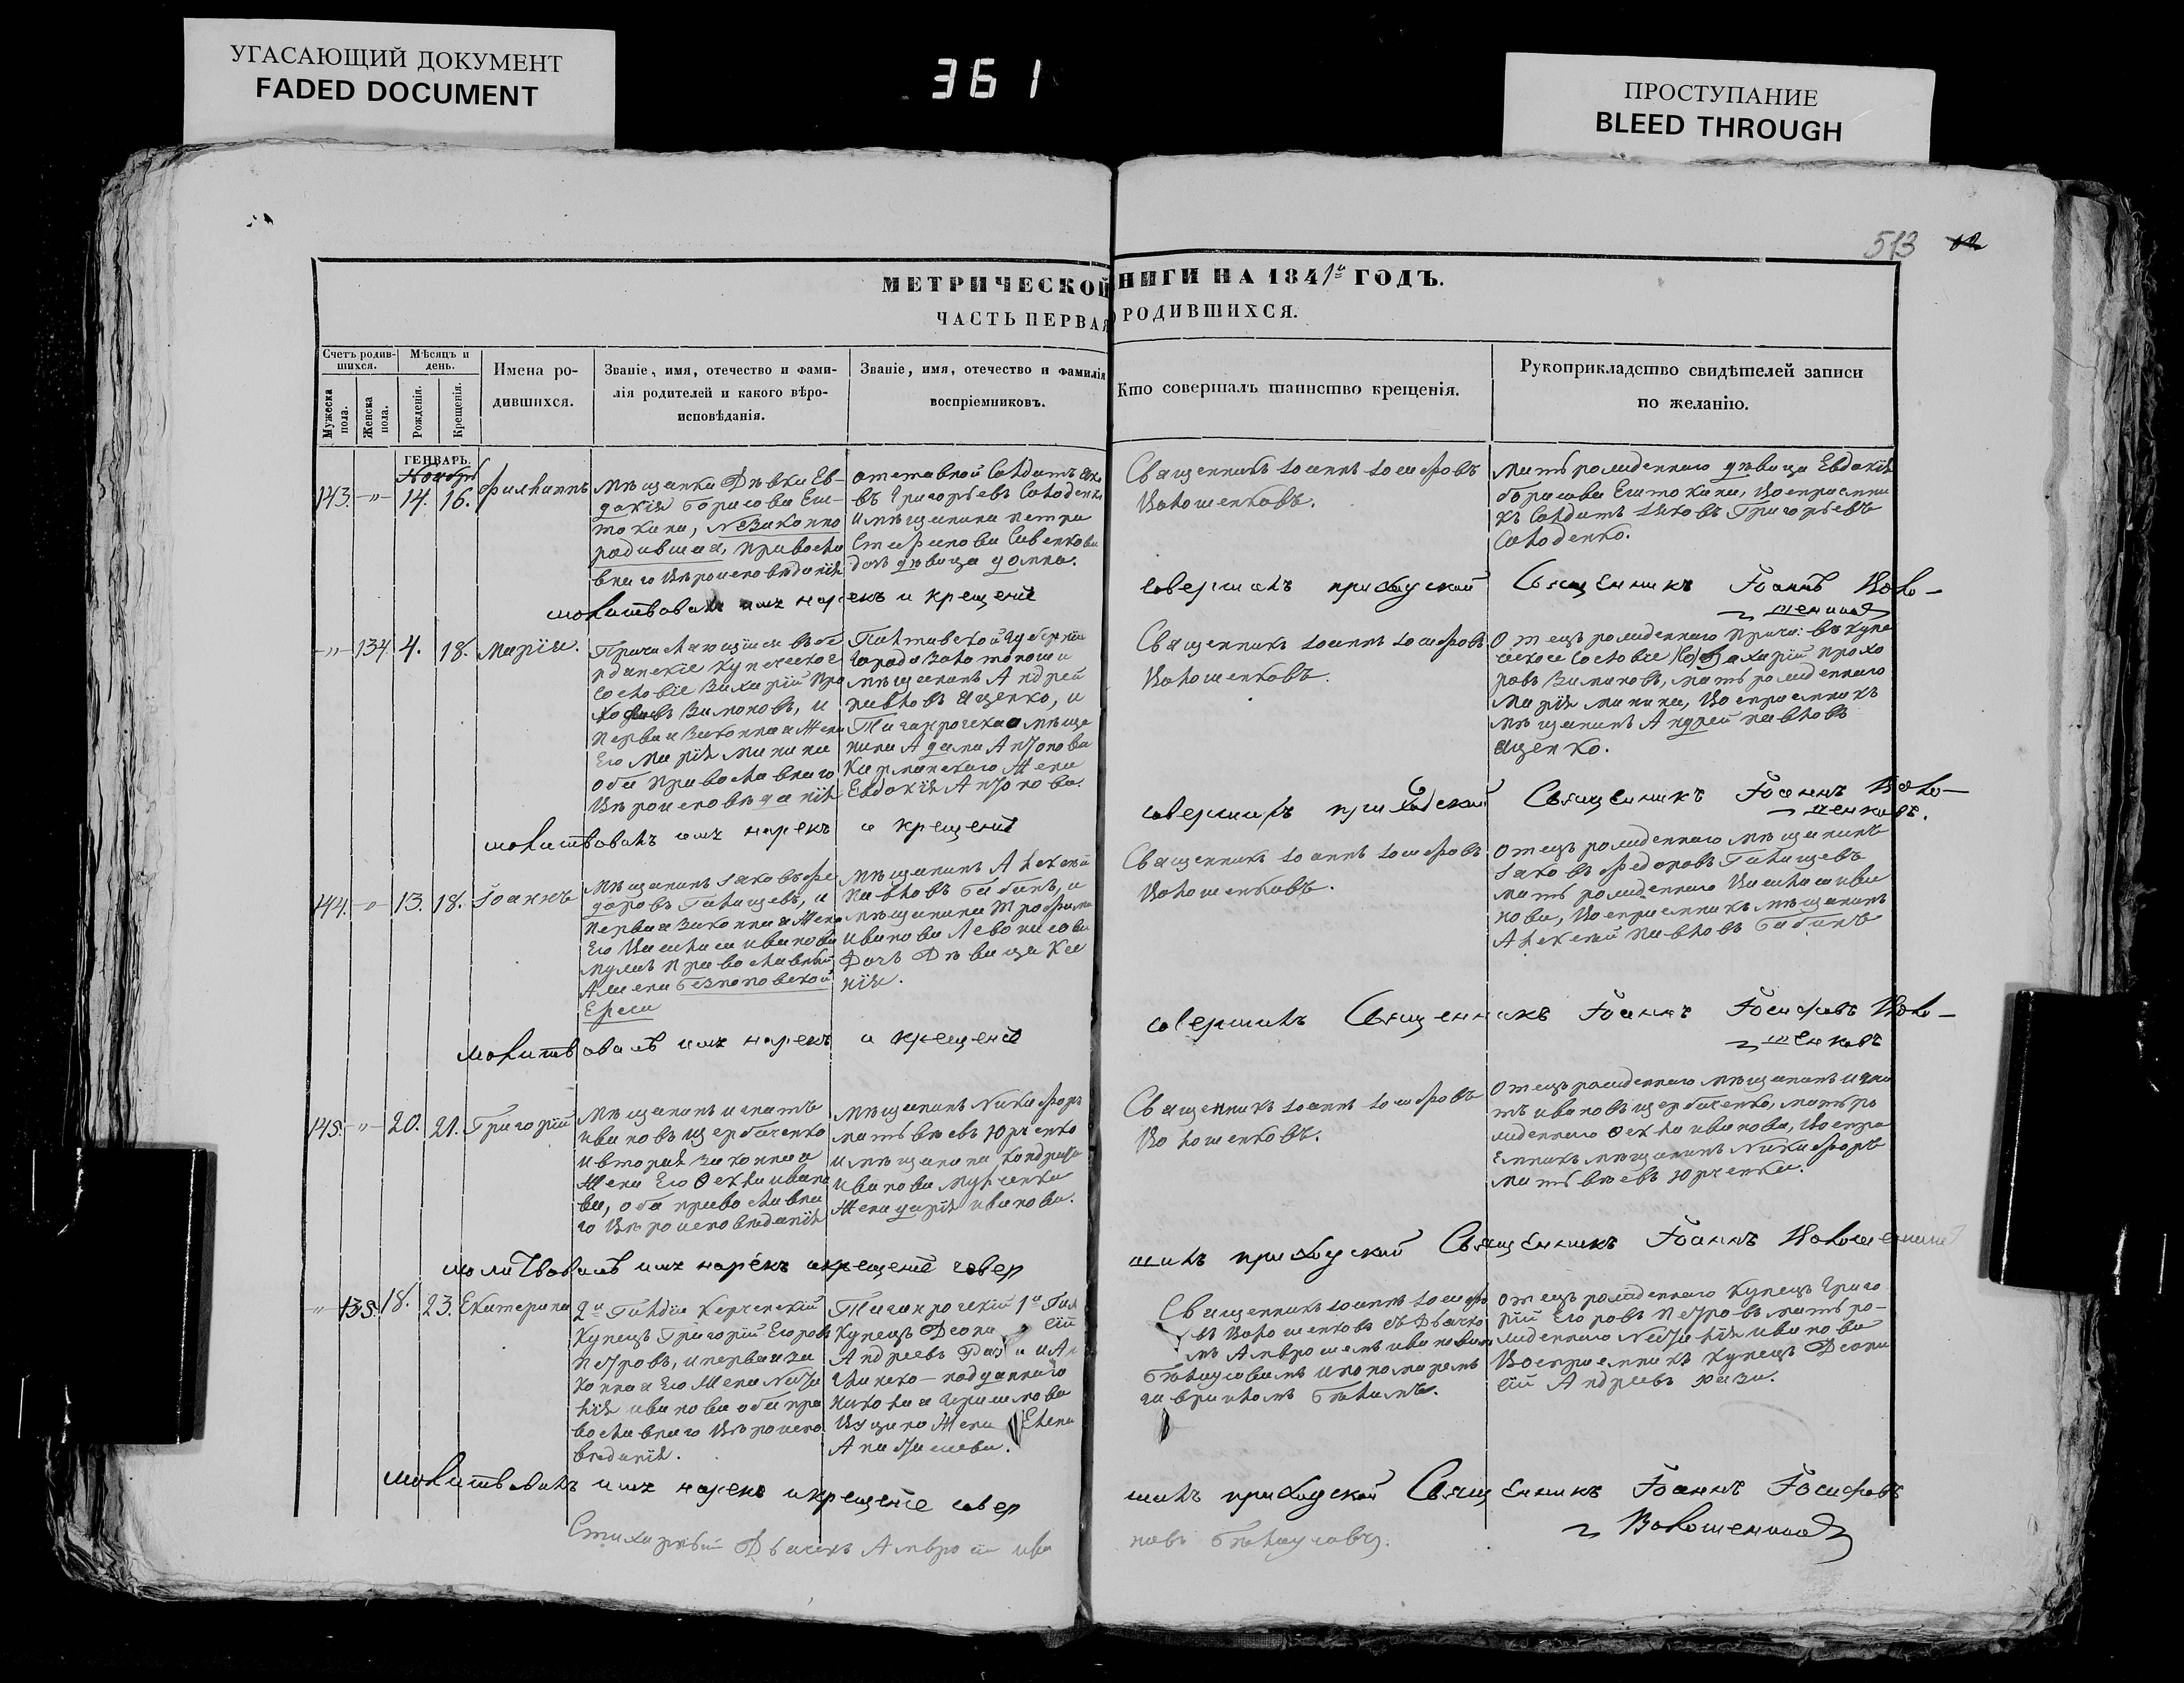 УГАСАЮЩИЙ ДОКУМЕНТ
FADED DOCUMENT
361
ПРОСТУПАНИЕ
BLEED THROUGH
513
МЕТРИЧЕСКОЙ НИГИ НА 1841й ГОДЪ.
ЧАСТЬ ПЕРВАЯ РОДИВШИХСЯ.
Счетъ родив-
шихся.
Мужеска пола.
Женска пола.
Мѣсяцъ и
день.
Рожденія.
Крещенія.
Имена ро-
дившихся.
Званіе, имя, отечество и фами-
лія родителей и какого вѣро-
исповѣданія.
Званіе, имя, отечество и фамилія
воспріемниковъ.
Кто совершалъ таинство крещенія.
Рукоприкладство свидѣтелей записи
по желанію.
ГЕНВАРЬ.
Ноябрь
143. -"- 14. 16. Филиппъ
Мѣщанка Дѣвка Ев-
докія Борисова
незаконно
родившая, православ
наго вѣроисповѣданія
отставной Солдатъ Яко
въ Григорьевъ Солоденко
и мѣщанина Петра
Стефанова Савенкова
дочь дѣвица домна.
Священникъ Іоаннъ Іосифовъ
Волошенковъ.
Мать рожденнаго дѣвица Евдокія
Борисова воспріемни
къ Солдатъ Яковъ Григорьевъ
Солоденко.
молитвовалъ имя нарекъ и крещеніе совершалъ приходский Священникъ Іоаннъ Воло-
шенковъ
-"- 134 4. 18. Марія.
Причисляющійся въ бе
рдянские купеческое
сословіе Захарій Про
хоровъ Зимоновъ, и
первая законная жена
его Марія
оба православнаго
вѣроисповѣданія
Полтавской губерніи
города Золотоноши
мѣщанинъ Андрей
Павловъ Яценко, и
Таганрогскаго мѣща
нина Адама Антонова
жена
Евдокія Антонова.
Священникъ Іоаннъ Іосифовъ
Волошенковъ.
Отецъ рожденнаго причи: въ купе
ческое сословіе Захарій Прохо
ровъ Зимоновъ, мать рожденнаго
Марія воспріемникъ
мѣщанинъ Андрей Павловъ
Яценко.
молитвовалъ имя нарекъ и крещеніе совершалъ приходской Священникъ Іоаннъ Воло-
шенковъ.
144. -"- 13. 18. Іоаннъ
Мѣщанинъ Іаковъ Фе
доровъ Голищевъ, и
первая законная жена
его Василиса Иванова
мужъ православный
а жена безпоповской
ереси
Мѣщанинъ Алексѣй
Павловъ Бабинъ, и
мѣщанина Трофима
Иванова Левонисова
дочь дѣвица Ксе
нія.
Священникъ Іоаннъ Іосифовъ
Волошенковъ.
Отецъ рожденнаго мѣщанинъ
Іаковъ Федоровъ Голищевъ
мать рожденнаго Василиса Ива
нова, воспріемникъ мѣщанинъ
Алексѣй Павловъ Бабинъ
молитвовалъ имя нарекъ и крещеніе совершилъ Священникъ Іоаннъ Іосифовъ Воло-
шенковъ
145. -"- 20. 21. Григорій
Мѣщанинъ Игнатъ
Ивановъ Щербаченко
и вторая законная
жена его Ѳекла Ивано
ва, оба православна
го вѣроисповеданія
Мѣщанинъ Никифоръ
Матвѣевъ Юрченко
и мѣщанина Кондрата
Иванова
жена Дарія Иванова.
Священникъ Іоаннъ Іосифовъ
Волошенковъ.
Отецъ рожденнаго мѣщанинъ Игна
тъ Ивановъ Щербаченко, мать ро
жденнаго Ѳекла Иванова, воспрі
емникъ мѣщанинъ Никифоръ
Матвѣевъ Юрченко.
молитвовалъ имя нарекъ и крещеніе совершилъ приходский Священникъ Іоаннъ Волошенковъ
" 135. 18. 23. Екатерина
2й Гильдіи Керченскій
купецъ Григорій Егоровъ
Петровъ, и первая за
конная его жена Ната
лія Иванова оба пра
вославнаго вѣроиспо
веданія.
Таганрогскій 1й Гил
купецъ
Андреевъ и
подданнаго
Николая Герасимова
жена Елена
Анастасьева.
Священникъ Іоаннъ Іосифо
въ Волошенковъ съ Дьячко
мъ Амвросіемъ Ивановымъ
Бѣлоусовымъ и пономаремъ
Гавріиломъ
Отецъ рожденнаго купецъ Григо
рій Егоровъ Петровъ мать ро-
жденнаго Наталія Иванова
воспріемникъ купецъ
Андреевъ
молитвовалъ имя нарекъ и крещеніе совершилъ приходской Священникъ Іоаннъ Іосифовъ
Волошенковъ
Стихарный Дьячекъ Амвросій Ивановъ Бѣлоусовъ.